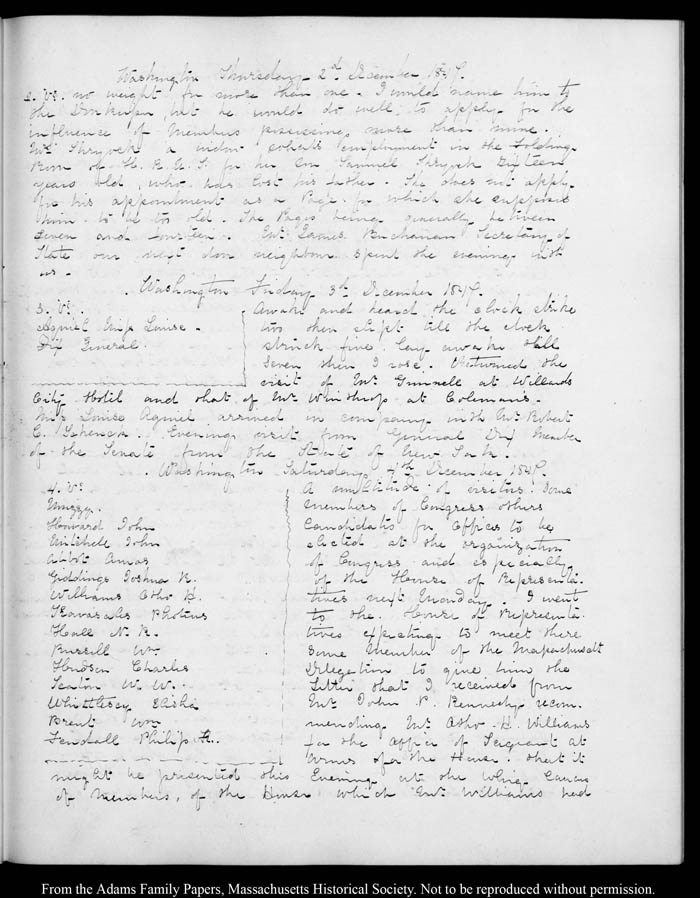 Washington Thursday 2d December 1847.
2. V: no weight for more than one. I would name him to
the Doorkeeper, but he would do well to apply for the
influence of Members possessing more than mine.
Mrs Shryock a widow solicits employment in the Folding
Room of H. R. U. S. for her Son Samuel Shryock Sixteen
years old, who has lost his father. She does not apply
for his appointment as a Page for which she supposes
him to be too old. The Pages being generally between
seven and fourteen. Mr James Buchanan Secretary of
State our next door neighbour spent the evening with
us.
Washington Friday 3d December 1847.
3. VI.
Agniel Miss Louise.
Dix General.
Awake and heard the clock strike
two then slept till the clock
struck five lay awake till
seven then I rose. Returned the
visit of Mr Grinnell at Willards
City Hotel and that of Mr Winthrop at Coleman's.
Miss Louise Agniel arrived in company with Mr Robert
C. Schenck. Evening visit from General Dix Member
of the Senate from the State of New York.
Washington Saturday 4th December 1847.
4. V:
Muzzy.
Howard John
Mitchell John
Abbot Amos
Giddings Joshua R.
Williams Otho H.
Kavasales Photius
Hall N. K.
Russell Wm
Hudson Charles
Seaton W. W.
Whittlesey Elisha
Brent Wm
Fendall Philip R.
A multitude of visitors some
members of Congress others
Candidates for Offices to be
elected at the organization
of Congress and especially
of the House of Representa-
tives next Monday. I went
to the House of Representa-
tives expecting to meet there
some Member of the Massachusetts
Delegation to give him the
Letter that I received from
Mr John P. Kennedy recom-
mending Mr Otho H. Williams
for the Office of Sergeant at
Arms of the House. that it
might be presented this Evening at the Whig Caucus
of Members, of the House which Mr Williams had
From the Adams Family Papers, Massachusetts Historical Society. Not to be reproduced without permission.